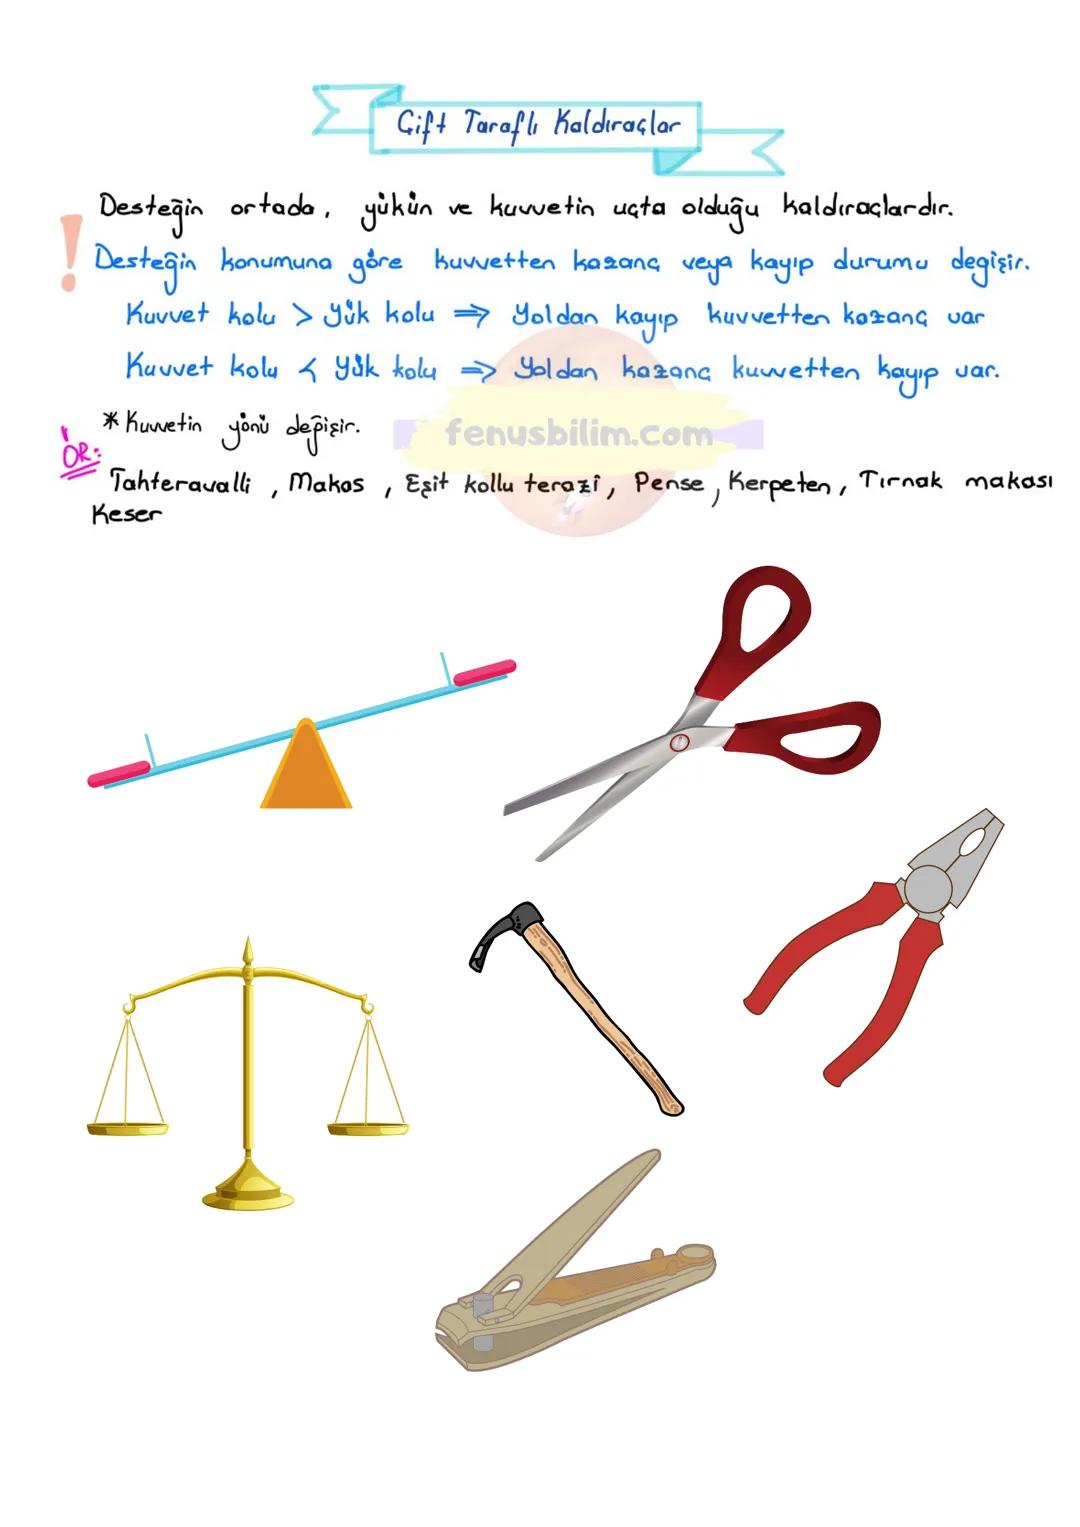 Çift Taraflı Kaldıraçlar
Desteğin ortada, yükün ve kuvvetin uçta olduğu kaldıraçlardır.
! Desteğin konumuna göre kuvvetten kazanç veya kayıp durumu degişir.
Kuvvet kolu > Yük kolu ⇒ Yoldan kayıp kuvvetten kazanç var
Kuvvet kolu < Yük kolu ⇒ Yoldan kazanç kuvvetten kayıp var.
* Kuvvetin yönü değişir.
fenusbilim.com
ÖR:
Tahteravalli, Makas, Eşit kollu terazi, Pense, Kerpeten, Tırnak makası
Keser